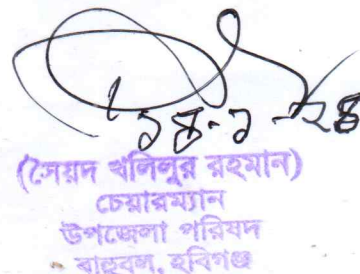 ১৪-১-২৪
(সৈয়দ খলিলুর রহমান)
চেয়ারম্যান
উপজেলা পরিষদ
বাহুবল, হবিগঞ্জ